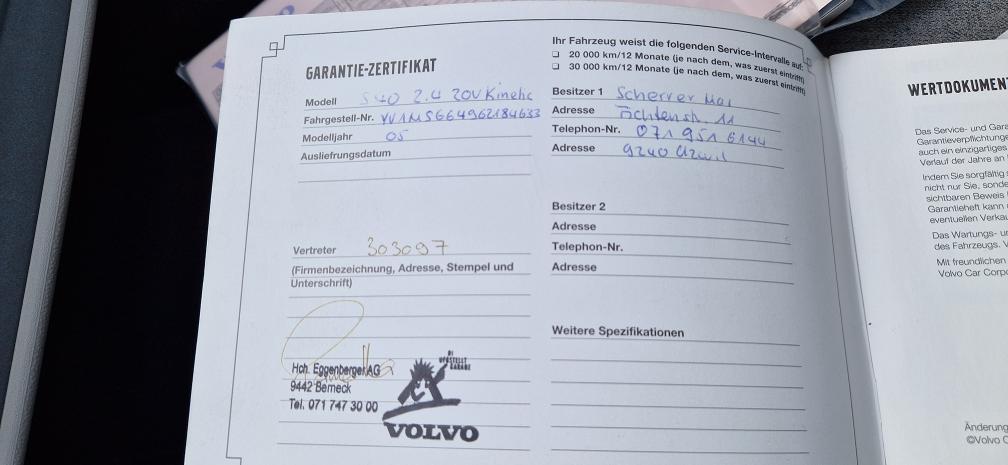 GARANTIE-ZERTIFIKAT
Modell S40 2.4 20V Kinetic
Fahrgestell-Nr. YV1MS664962184633
Modelljahr 05
Auslieferungsdatum
Vertreter 303097
(Firmenbezeichnung, Adresse, Stempel und
Unterschrift)
Hch. Eggenberger AG
9442 Berneck
Tel. 071 747 30 00
GARAGE
VOLVO
Ihr Fahrzeug weist die folgenden Service-Intervalle auf:
20 000 km/12 Monate (je nach dem, was zuerst eintrifft)
30 000 km/12 Monate (je nach dem, was zuerst eintrifft)
Besitzer 1 Scherrer
Adresse 11
Telephon-Nr. 071 951 6144
Adresse 9240 Uzwil
Besitzer 2
Adresse
Telephon-Nr.
Adresse
Weitere Spezifikationen
WERTDOKUMEN
Das Service- und Gara
Garantieverpflichtunge
auch ein einzigartiges
Verlauf der Jahre an
Indem Sie sorgfältig
nicht nur Sie, sonde
sichtbaren Beweis
Garantieheft kann
eventuellen Verkau
Das Wartungs- un
des Fahrzeugs. V
Mit freundlichen
Volvo Car Corpo
Änderung
©Volvo C